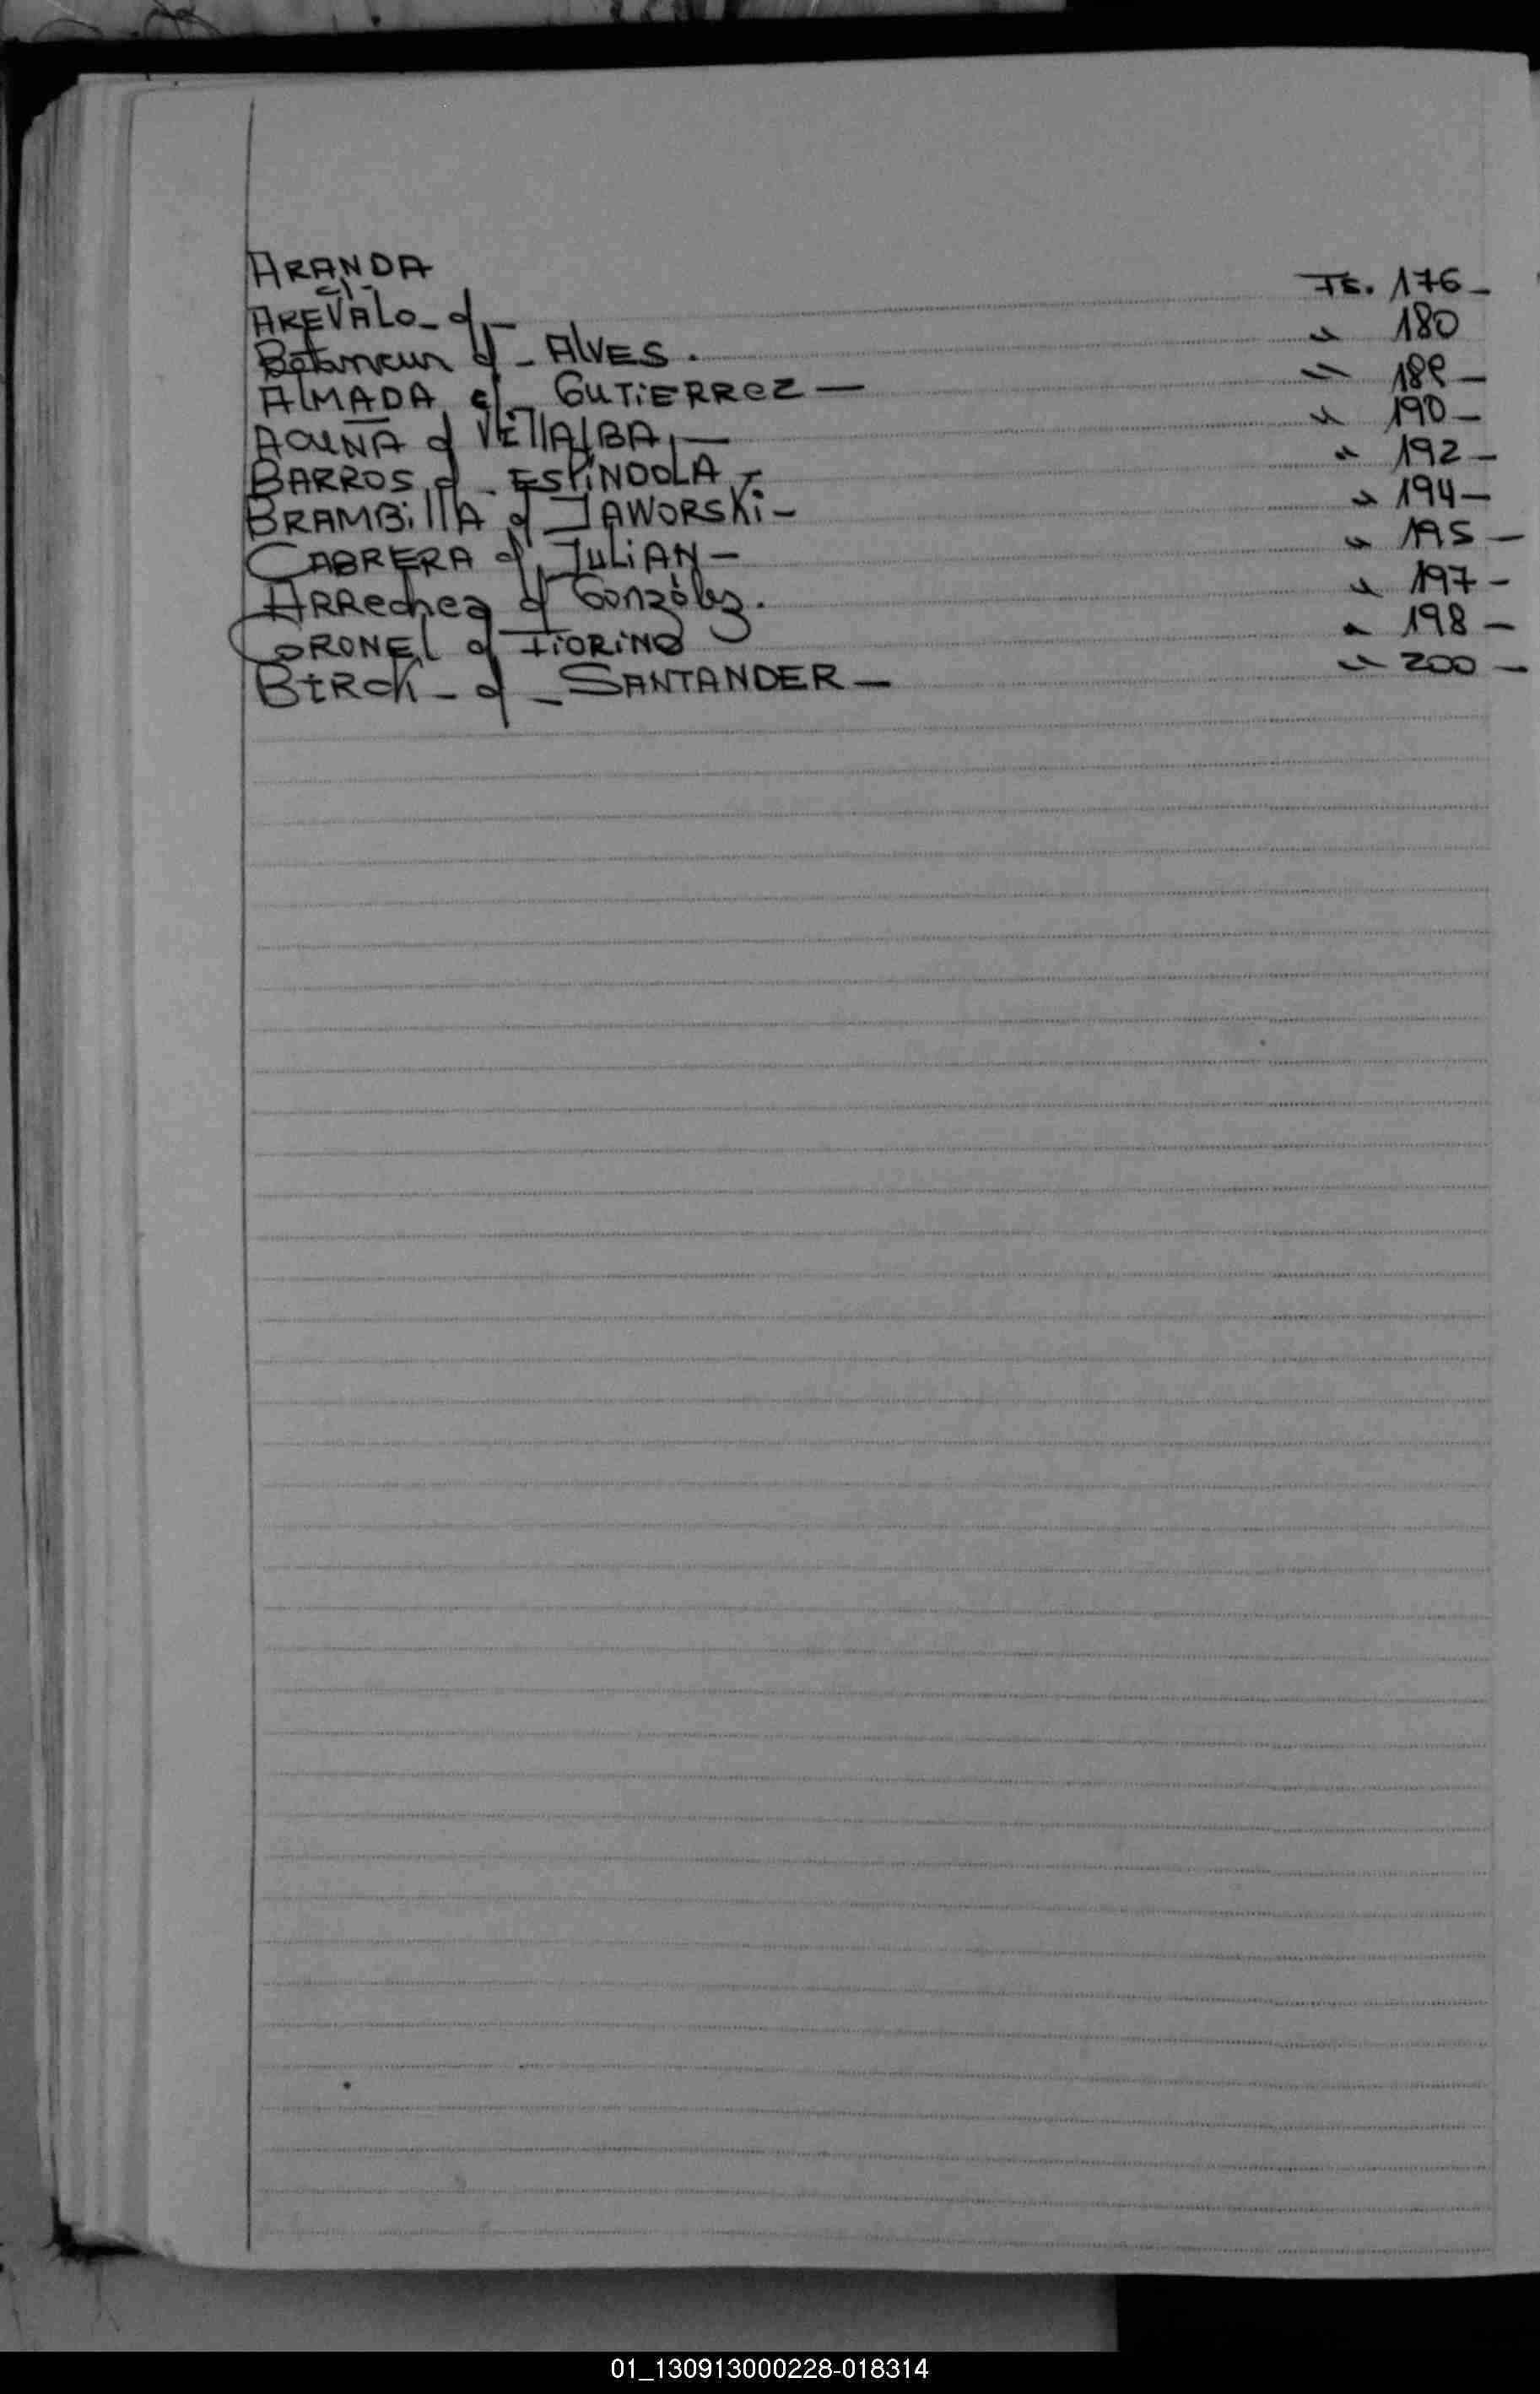 ARANDA
c/-
AREVALO - c/ - Fs. 176 -
Betancur c/ - ALVES. " 180
ALMADA c/ - GUTiERREZ — " 189 -
ACUÑA c/ VillALBA, — " 190 -
BARROS c/ - ESPÍNDOLA - " 192 -
BRAMBillA c/ JAWORSKi - " 194 -
CABRERA c/ JULiAN - " 195 -
ARRechea c/ González. " 197 -
CORONEL c/ FiORiNO " 198 -
c/ - SANTANDER — " 200 -
01_130913000228-018314